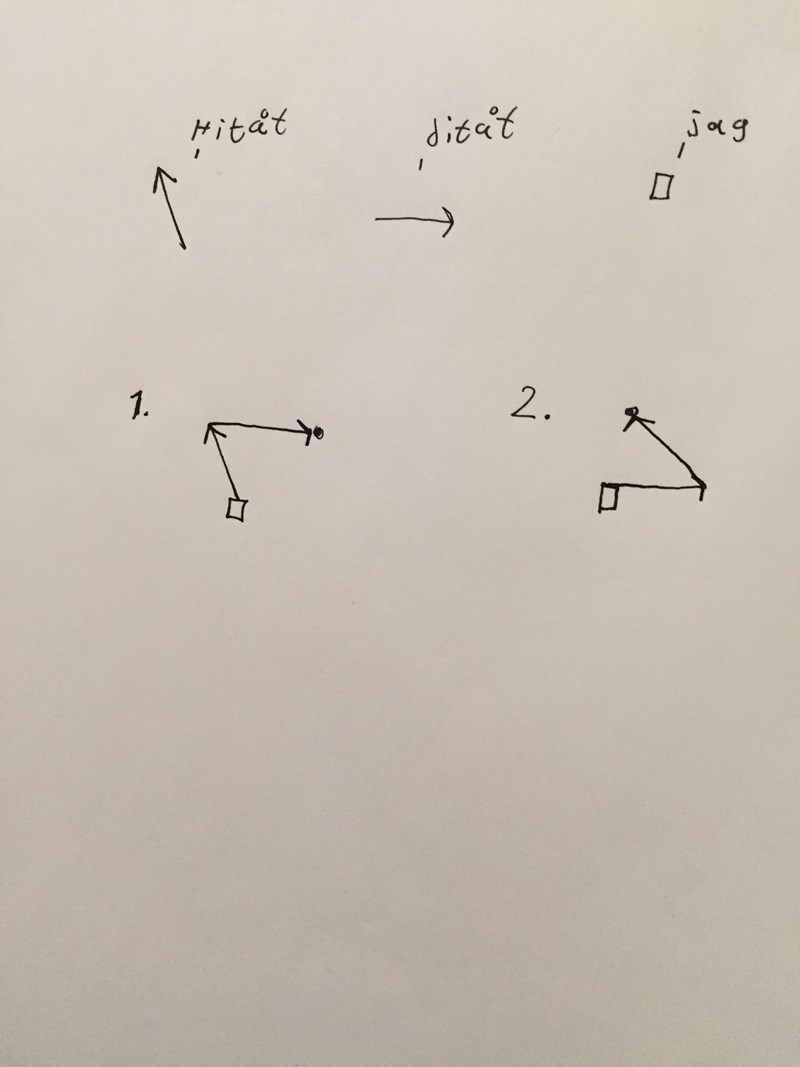 Hitåt ditåt jag
1. 2.